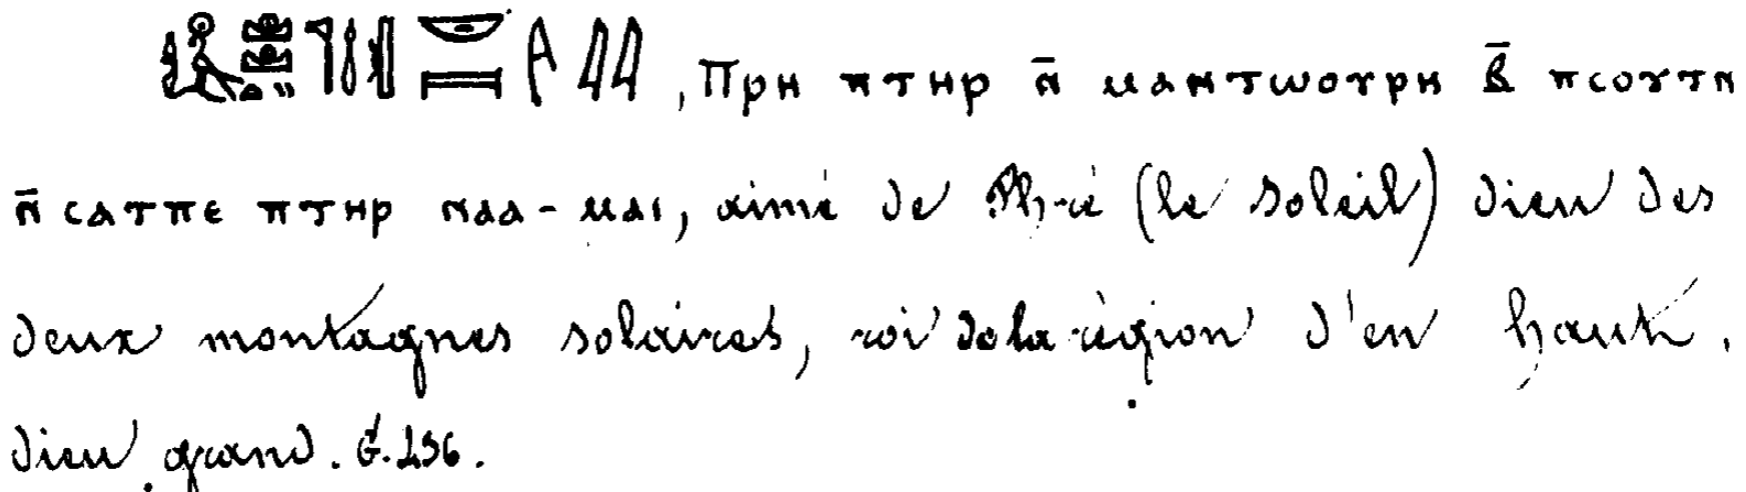 , Πρн πτнρ n̄ ⲙⲁⲛⲧⲱⲟⲩⲣⲏ B̄ ⲡⲥⲟⲩⲧⲛ
ⲛ̄ ⲥⲁⲧⲡⲉ ⲡⲧⲏⲣ ⲛⲁⲁ-ⲙⲁⲓ, aimé de Ph-ré (le soleil) dieu des
deux montagnes solaires, roi de la région d'en haut,
dieu grand. G. 256.